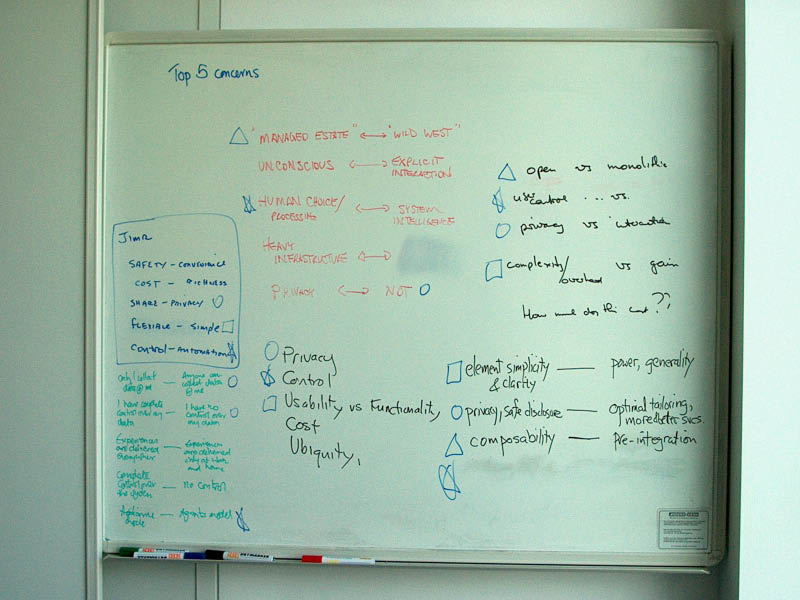 Top 5 concerns
"MANAGED ESTATE" ↔ "WILD WEST"
UNCONSCIOUS ↔ EXPLICIT
INTERACTION
HUMAN CHOICE/ ↔ SYSTEM
PROCESSING INTELLIGENCE
HEAVY
INFRASTRUCTURE ↔
PRIVACY ↔ NOT
open vs monolithic
user
control ... vs.
privacy vs interaction
complexity/ vs gain
overhead
How much does this cost??
SAFETY – CONVENIENCE
COST – RICHNESS
SHARE – PRIVACY
FLEXIBLE – Simple
Control – AUTOMATION
Only I collect — Anyone can
data @ me collect data
@ me
I have complete — I have no
control over my control over
data my data
Experiences — Experiences
are delivered are delivered
only at work
and home
Complete
control over — No control
the system
Appliance — Agents model
Privacy
Control
Usability vs Functionality
Cost
Ubiquity,
element simplicity — power, generality
& clarity
privacy, safe disclosure — optimal tailoring,
more better svcs.
composability — Pre-integration